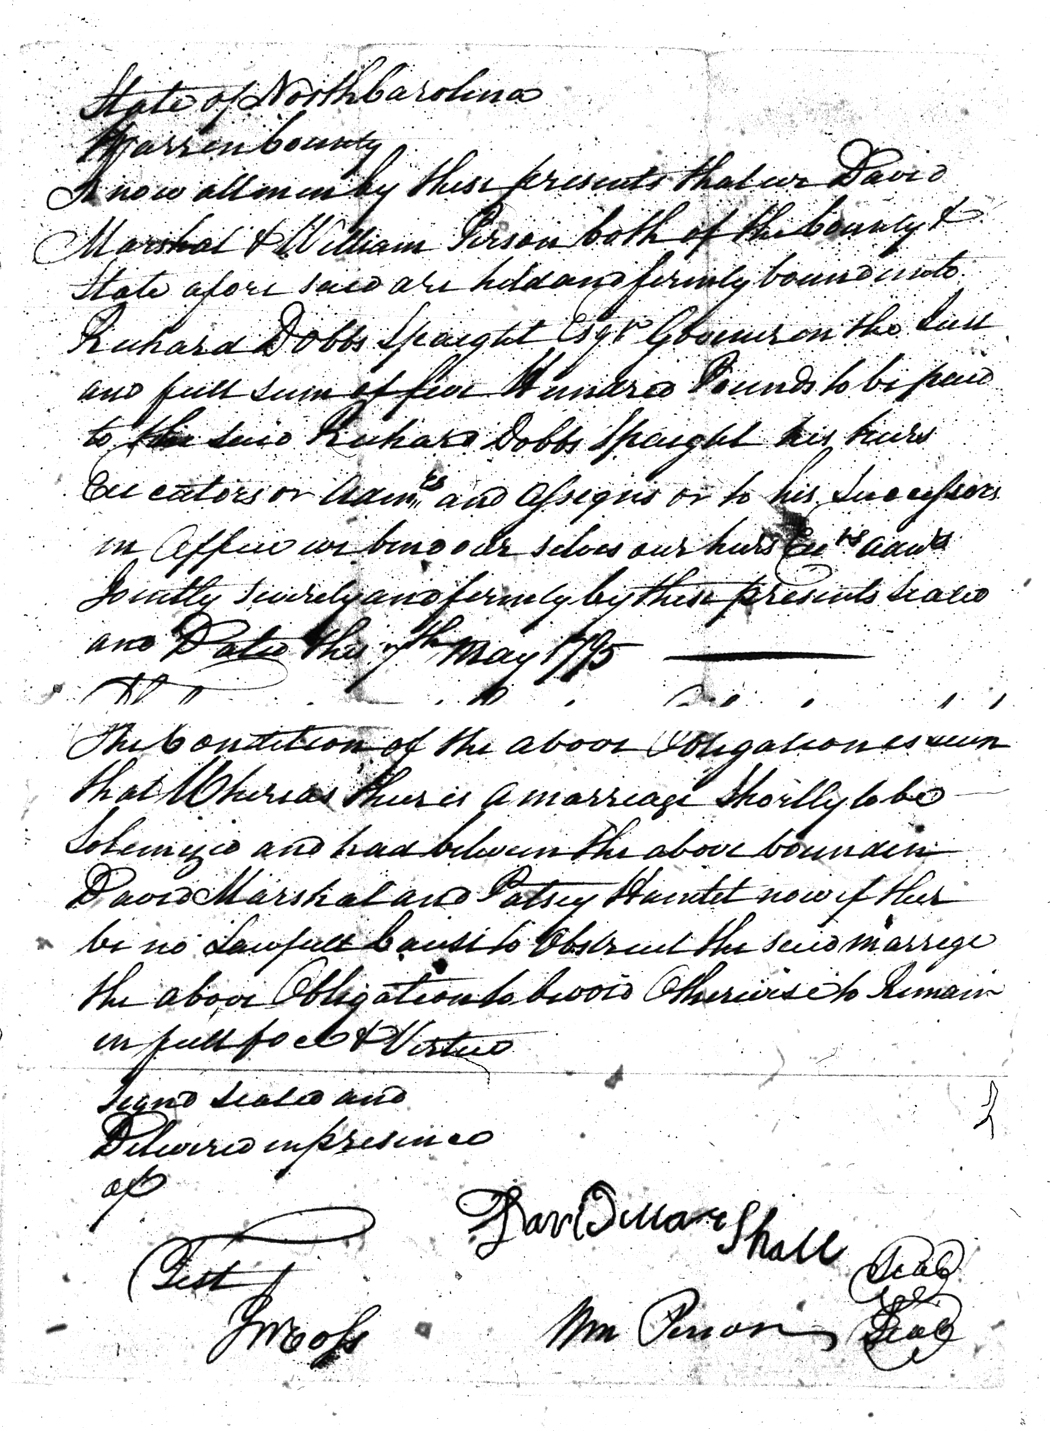 State of North Carolina
Warren County
Know all men by these presents that we David
Marshal & William Person both of the County &
State afore said are held and firmly bound unto
Richard Dobbs Spaight Esqr Governer in the Just
and full sum of five Hundred Pounds to be paid
to the said Richard Dobbs Spaight his heirs
Executors or Admrs and Assigns or to his Successors
in Office we bind our selves our heirs Exrs Admrs
Jointly severely and firmly by these presents Sealed
and Dated this 7th May 1795
The Condition of the above Obligation is such
that Whereas their is a marreage Shortly to be
Solemized and had between the above bounden
David Marshal and Patsey Hamlet now if their
be no Lawfull Cause to Obstruct the said marrege
the above Obligation to be void Otherwise to Remain
in full foce & Virtue
Signd Sealed and
Delivered in presence
of
David Mar
Shall Seal
Test
Wm Person Seal